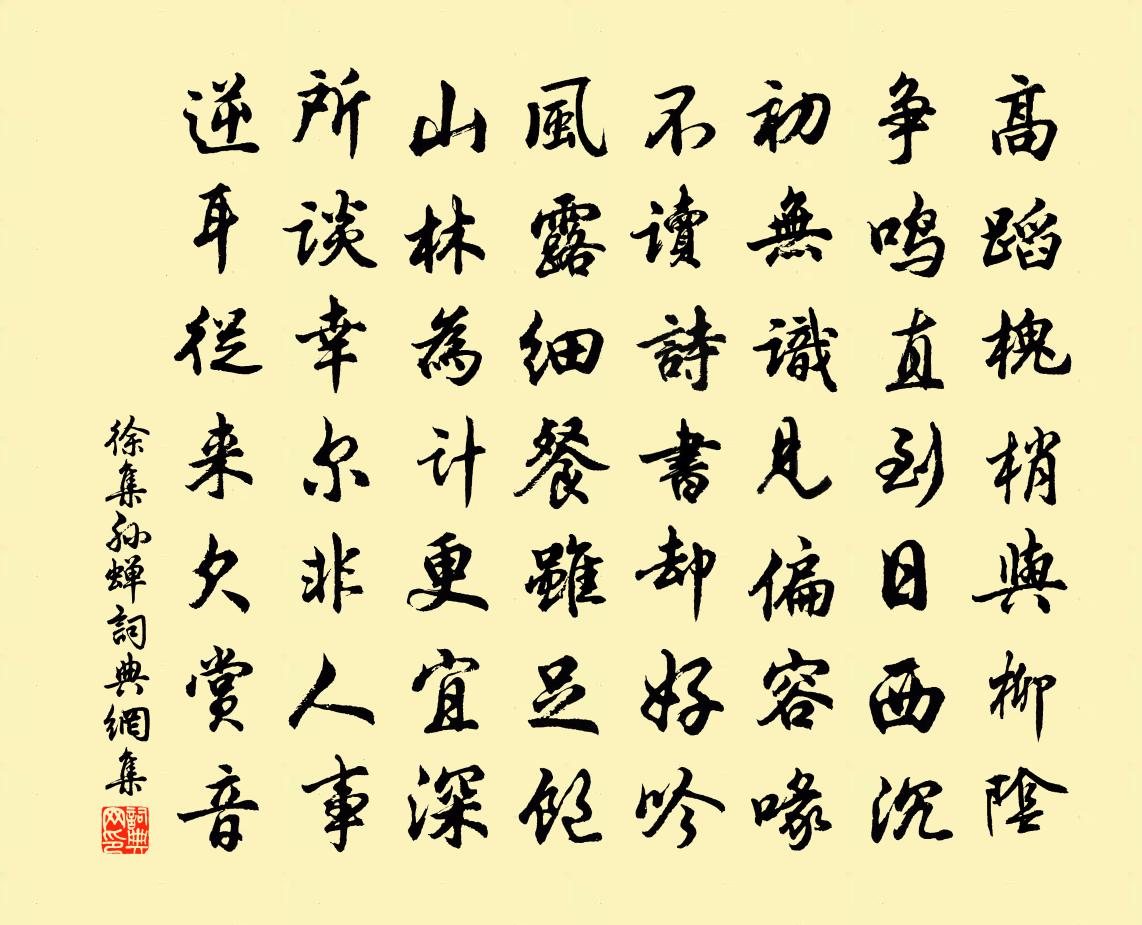 高蹈槐梢與柳陰
争鳴直到日西沉
初無識見偏容喙
不讀詩書却好吟
風露細餐雖足飽
山林為計更宜深
所談幸尔非人事
逆耳從来欠賞音
徐集孙蝉詞典網集
詞典网印